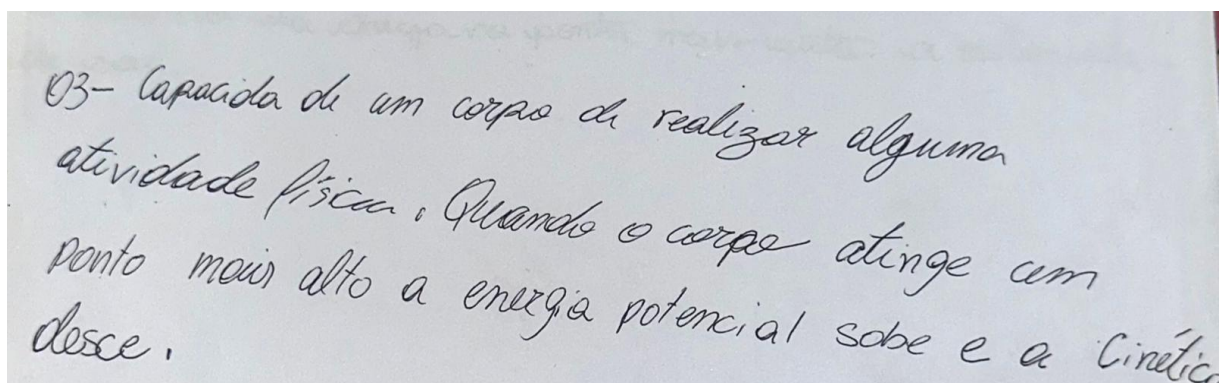 03- Capacida de um corpo de realizar alguma
atividade física. Quando o corpo atinge um
ponto mais alto a energia potencial sobe e a Cinética
desce.